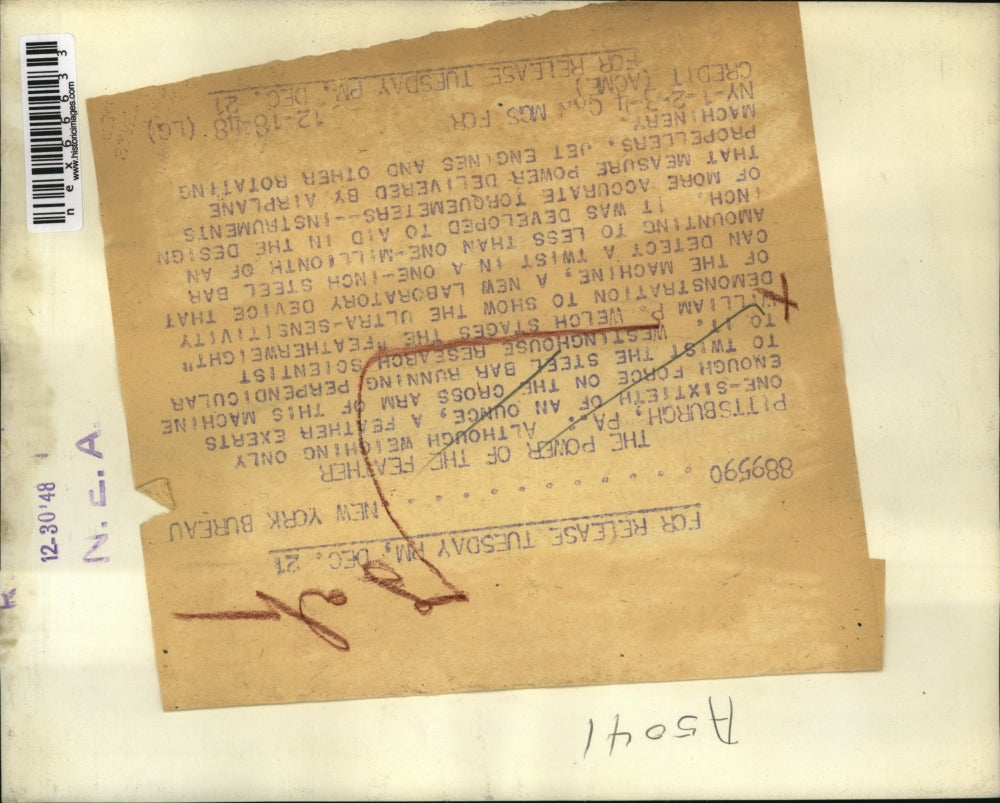 FOR RELEASE TUESDAY PM, DEC. 21
889590 . . . . . . . . . . . NEW YORK BUREAU
THE POWER OF THE FEATHER
PITTSBURGH, PA. ALTHOUGH WEIGHING ONLY
ONE-SIXTIETH OF AN OUNCE, A FEATHER EXERTS
ENOUGH FORCE ON THE CROSS ARM OF THIS MACHINE
TO TWIST THE STEEL BAR RUNNING PERPENDICULAR
TO IT. WESTINGHOUSE RESEARCH SCIENTIST
WILLIAM P. WELCH STAGES THE "FEATHERWEIGHT"
DEMONSTRATION TO SHOW THE ULTRA-SENSITIVITY
OF THE MACHINE, A NEW LABORATORY DEVICE THAT
CAN DETECT A TWIST IN A ONE-INCH STEEL BAR
AMOUNTING TO LESS THAN ONE-MILLIONTH OF AN
INCH. IT WAS DEVELOPED TO AID IN THE DESIGN
OF MORE ACCURATE TORQUEMETERS--INSTRUMENTS
THAT MEASURE POWER DELIVERED BY AIRPLANE
PROPELLERS, JET ENGINES AND OTHER ROTATING
MACHINERY.
NY-1-2-3-4 MGS FOR
CREDIT (ACME) 12-18-48 (LG)
FOR RELEASE TUESDAY PM, DEC. 21
A5041
12-30'48
N.E.A.
nex66633
www.historicimages.com